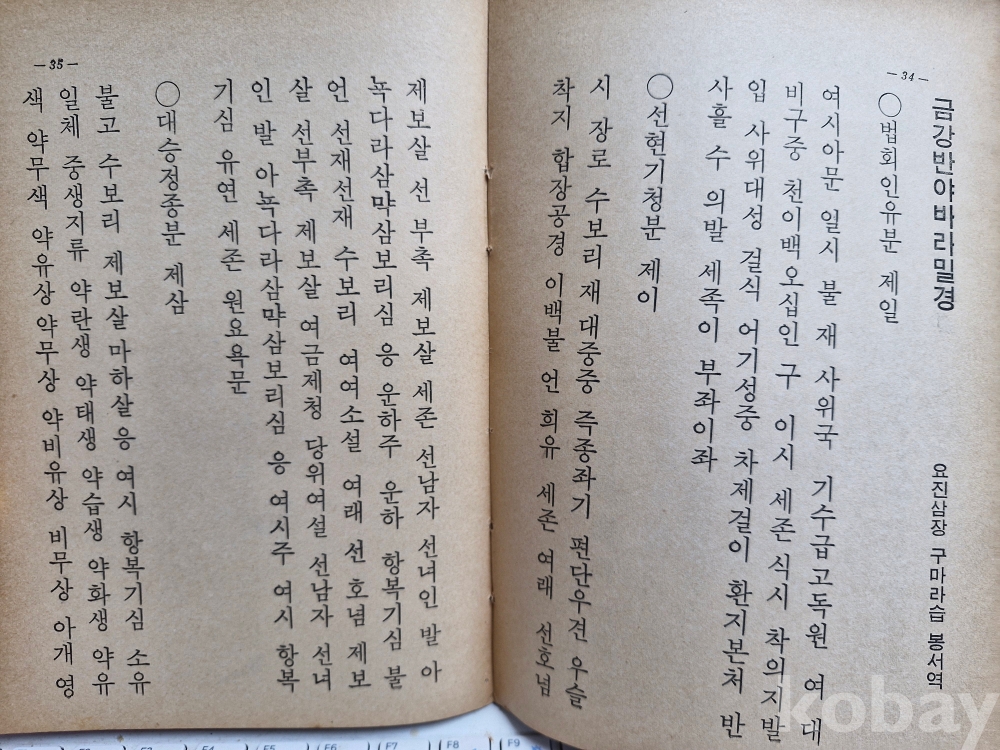 —34—
금강반야바라밀경
요진삼장 구마라습 봉서역
○법회인유분 제일
여시아문 일시 불 재 사위국 기수급고독원 여 대
비구중 천이백오십인 구 이시 세존 식시 착의지발
입 사위대성 걸식 어기성중 차제걸이 환지본처 반
사흘 수 의발 세족이 부좌이좌
○선현기청분 제이
시 장로 수보리 재 대중중 즉종좌기 편단우견 우슬
착지 합장공경 이백불 언 희유 세존 여래 선호념
—35—
제보살 선 부촉 제보살 세존 선남자 선녀인 발 아
뇩다라삼먁삼보리심 응 운하주 운하 항복기심 불
언 선재선재 수보리 여여소설 여래 선 호념 제보
살 선부촉 제보살 여금제청 당위여설 선남자 선녀
인 발 아뇩다라삼먁삼보리심 응 여시주 여시 항복
기심 유연 세존 원요욕문
○대승정종분 제삼
불고 수보리 제보살마하살 응 여시 항복기심 소유
일체 중생지류 약란생 약태생 약습생 약화생 약유
색 약무색 약유상 약무상 약비유상 비무상 아개 영
kobay
F5
F6
F7
F8
F9